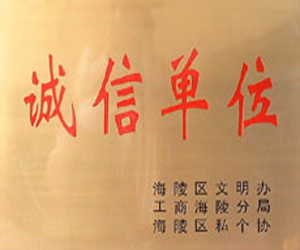 诚信单位
海陵区文明办
工商海陵分局
海陵区私个协